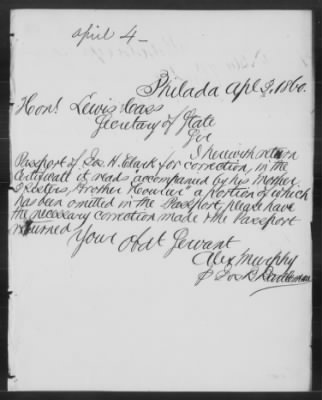 april 4 -
Philada Apl 3, 1860.
Honl. Lewis Cass
Secretary of State
Sir
I herewith return
Passport of Jos. H. Clark for correction, in the
Certificate it reads accompanied by his Mother
Sisters, Brother a portion of which
has been omitted in the Passport, please have
the necessary correction made & the Passport
returned
Your Obdt Servant
Alex Murphy
p Jos B